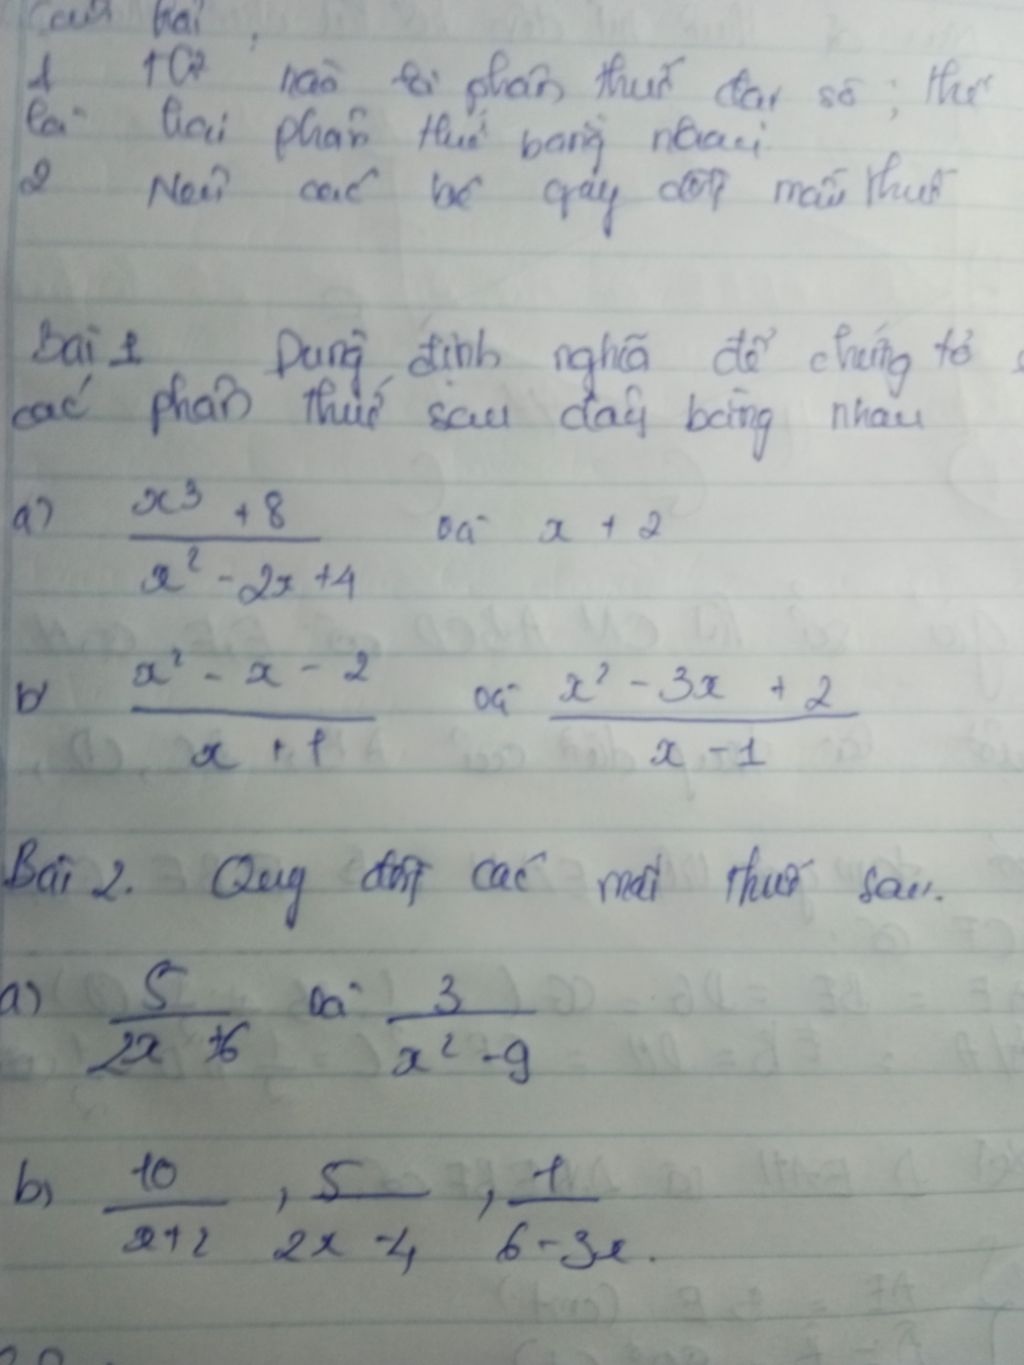 Câu hỏi
1 Thế nào là phân thức đại số ; thế
là hai phân thức bằng nhau
2 Nêu các bc quy đồng mẫu thức
Bài 1 Dùng định nghĩa để chứng tỏ
các phân thức sau đây bằng nhau
a) \frac{x^3 + 8}{x^2 - 2x + 4} và x + 2
b) \frac{x^2 - x - 2}{x + 1} và \frac{x^2 - 3x + 2}{x - 1}
Bài 2. Quy đồng các mẫu thức sau.
a) \frac{5}{2x + 6} và \frac{3}{x^2 - 9}
b) \frac{10}{x + 2} , \frac{5}{2x - 4} , \frac{1}{6 - 3x}.